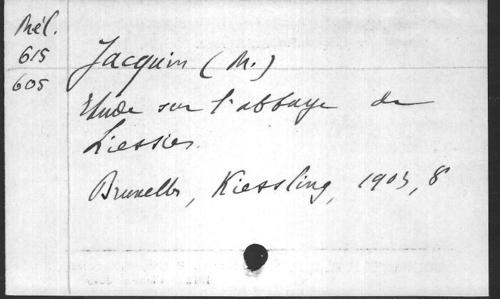 Mél.
615
605
Jacquin (M.)
Etude sur l'abbaye de
Liessies.
Bruxelles, Kiessling, 1903, 8